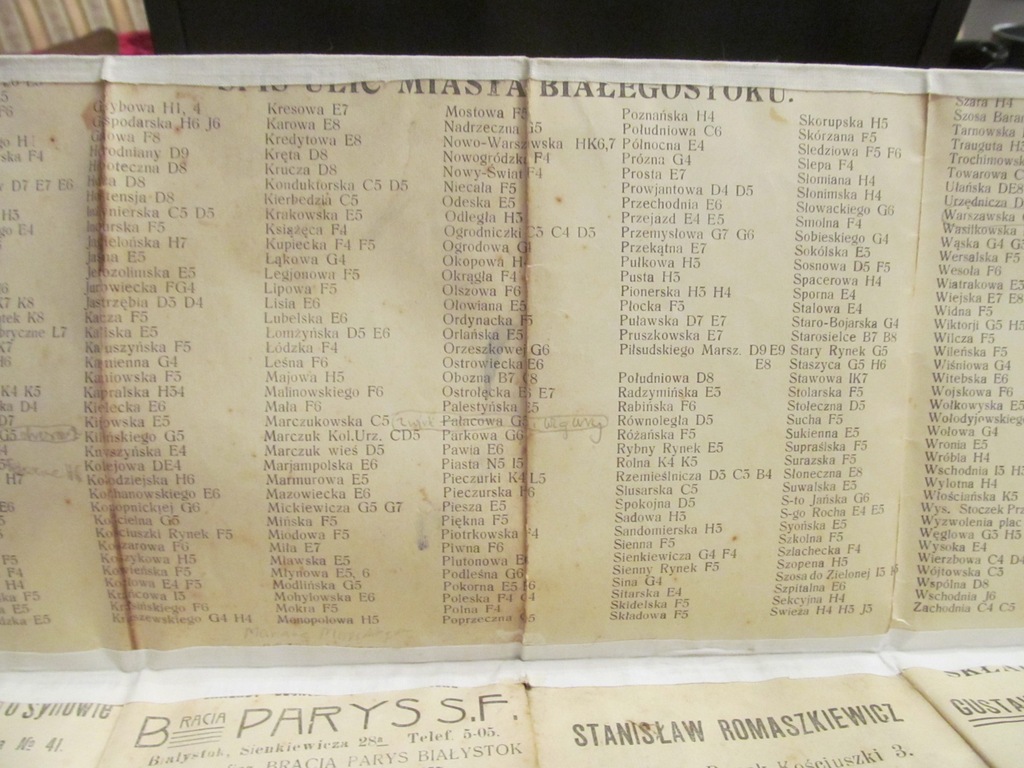 SPIS ULIC MIASTA BIAŁEGOSTOKU.
Grybowa H1, 4
Gospodarska H6 J6
F8
Horodniany D9
Hipoteczna D8
D8
Hortensja D8
Inżynierska C5 D5
F5
Jagielońska H7
Jasna E5
Jerozolimska E5
Jurowiecka FG4
Jastrzębia D3 D4
Kacza F5
Kaliska E5
F5
Kamienna G4
Kaniowska F5
Kapralska H34
Kielecka E6
Kijowska E5
Kilińskiego G5
Knyszyńska E4
Kolejowa DE4
Kołodziejska H6
Kochanowskiego E6
Konopnickiej G6
Kościelna G5
Kościuszki Rynek F5
Koszarowa F6
Koszykowa H5
Kowieńska F5
Kozłowa E4 F5
Krańcowa I5
Krasińskiego F6
Kraszewskiego G4 H4
Kresowa E7
Karowa E8
Kredytowa E8
Kręta D8
Krucza D8
Konduktorska C5 D5
Kierbedzia C5
Krakowska E5
Książęca F4
Kupiecka F4 F5
Łąkowa G4
Legjonowa F5
Lipowa F5
Lisia E6
Lubelska E6
Łomżyńska D5 E6
Łódzka F4
Leśna F6
Majowa H5
Malinowskiego F6
Mała F6
Marczukowska C5
Marczuk Kol.Urz. CD5
Marczuk wieś D5
Marjampolska E6
Marmurowa E5
Mazowiecka E6
Mickiewicza G5 G7
Mińska F5
Miodowa F5
Miła E7
Mławska E5
Młynowa E5, 6
Modlińska G5
Mohylowska E6
Mokra F5
Monopolowa H5
Mostowa F5
Nadrzeczna G5
Nowo-Warszawska HK6,7
Nowogródzka F4
Nowy-Świat F4
Niecała F5
Odeska E5
Odległa H3
Ogrodniczki C3 C4 D3
Ogrodowa G4
Okopowa H
Okrągła F4
Olszowa F6
Ołowiana E5
Ordynacka F5
Orlańska E5
Orzeszkowej G6
Ostrowiecka E6
Obozna B7 C8
Ostrołęcka E6 E7
Palestyńska E5
Pałacowa G5
Parkowa G6
Pawia E6
Piasta N5 I5
Pieczurki K4 L5
Pieczurska F6
Piesza E5
Piękna F5
Piotrkowska F4
Piwna F6
Plutonowa E
Podleśna G6
Pokorna E5 E6
Poleska F4 G4
Polna F4
Poprzeczna G5
Poznańska H4
Południowa C6
Północna E4
Prózna G4
Prosta E7
Prowjantowa D4 D5
Przechodnia E6
Przejazd E4 E5
Przemysłowa G7 G6
Przekątna E7
Pułkowa H3
Pusta H3
Pionierska H3 H4
Płocka F5
Puławska D7 E7
Pruszkowska E7
Piłsudskiego Marsz. D9 E9
E8
Południowa D8
Radzymińska E5
Rabińska F6
Równoległa D5
Różańska F5
Rybny Rynek E5
Rolna K4 K5
Rzemieślnicza D3 C3 B4
Ślusarska C5
Spokojna D5
Sadowa H3
Sandomierska H3
Sienna F5
Sienkiewicza G4 F4
Sienny Rynek F5
Sina G4
Sitarska E4
Skidelska F5
Składowa F5
Skorupska H5
Skórzana F5
Śledziowa F5 F6
Ślepa F4
Słomiana H4
Słonimska H4
Słowackiego G6
Smolna F4
Sobieskiego G4
Sokólska E5
Sosnowa D5 F5
Spacerowa H4
Sporna E4
Stalowa E4
Staro-Bojarska G4
Starosielce B7 B8
Stary Rynek G5
Staszyca G5 H6
Stawowa IK7
Stolarska F5
Stołeczna D5
Sucha F5
Sukienna E5
Supraślska F5
Surazska F5
Słoneczna E8
Suwalska E5
S-to Jańska G6
S-go Rocha E4 E5
Syońska E5
Szkolna F5
Szlachecka F4
Szopena H5
Szosa do Zielonej I5
Szpitalna E6
Sekcyjna H4
Swieża H4 H3 J3
Szara H4
Szosa Baran
Tarnowska
Trauguta H3
Trochimowska
Towarowa C
Ułańska DE8
Urzędnicza D
Warszawska
Wasilkowska
Wąska G4
Wersalska F5
Wesoła F6
Wiatrakowa E3
Wiejska E7 E8
Widna F5
Wiktorji G5 H5
Wilcza F5
Wileńska F5
Wiśniowa G4
Witebska E6
Wojskowa F6
Wołkowyska E5
Wołodyjowskiego
Wołowa G4
Wronia E5
Wróbla H4
Wschodnia I3
Wylotna H4
Włościańska K5
Wys. Stoczek
Wyzwolenia plac
Węglowa G3 H3
Wysoka E4
Wierzbowa C4
Wójtowska C3
Wspólna D8
Wschodnia J6
Zachodnia C4 C5
BRACIA PARYS S.F.
Białystok, Sienkiewicza 28a Telef. 5-05.
BRACIA PARYS BIAŁYSTOK
STANISŁAW ROMASZKIEWICZ
Rynek Kościuszki 3.
№ 41.